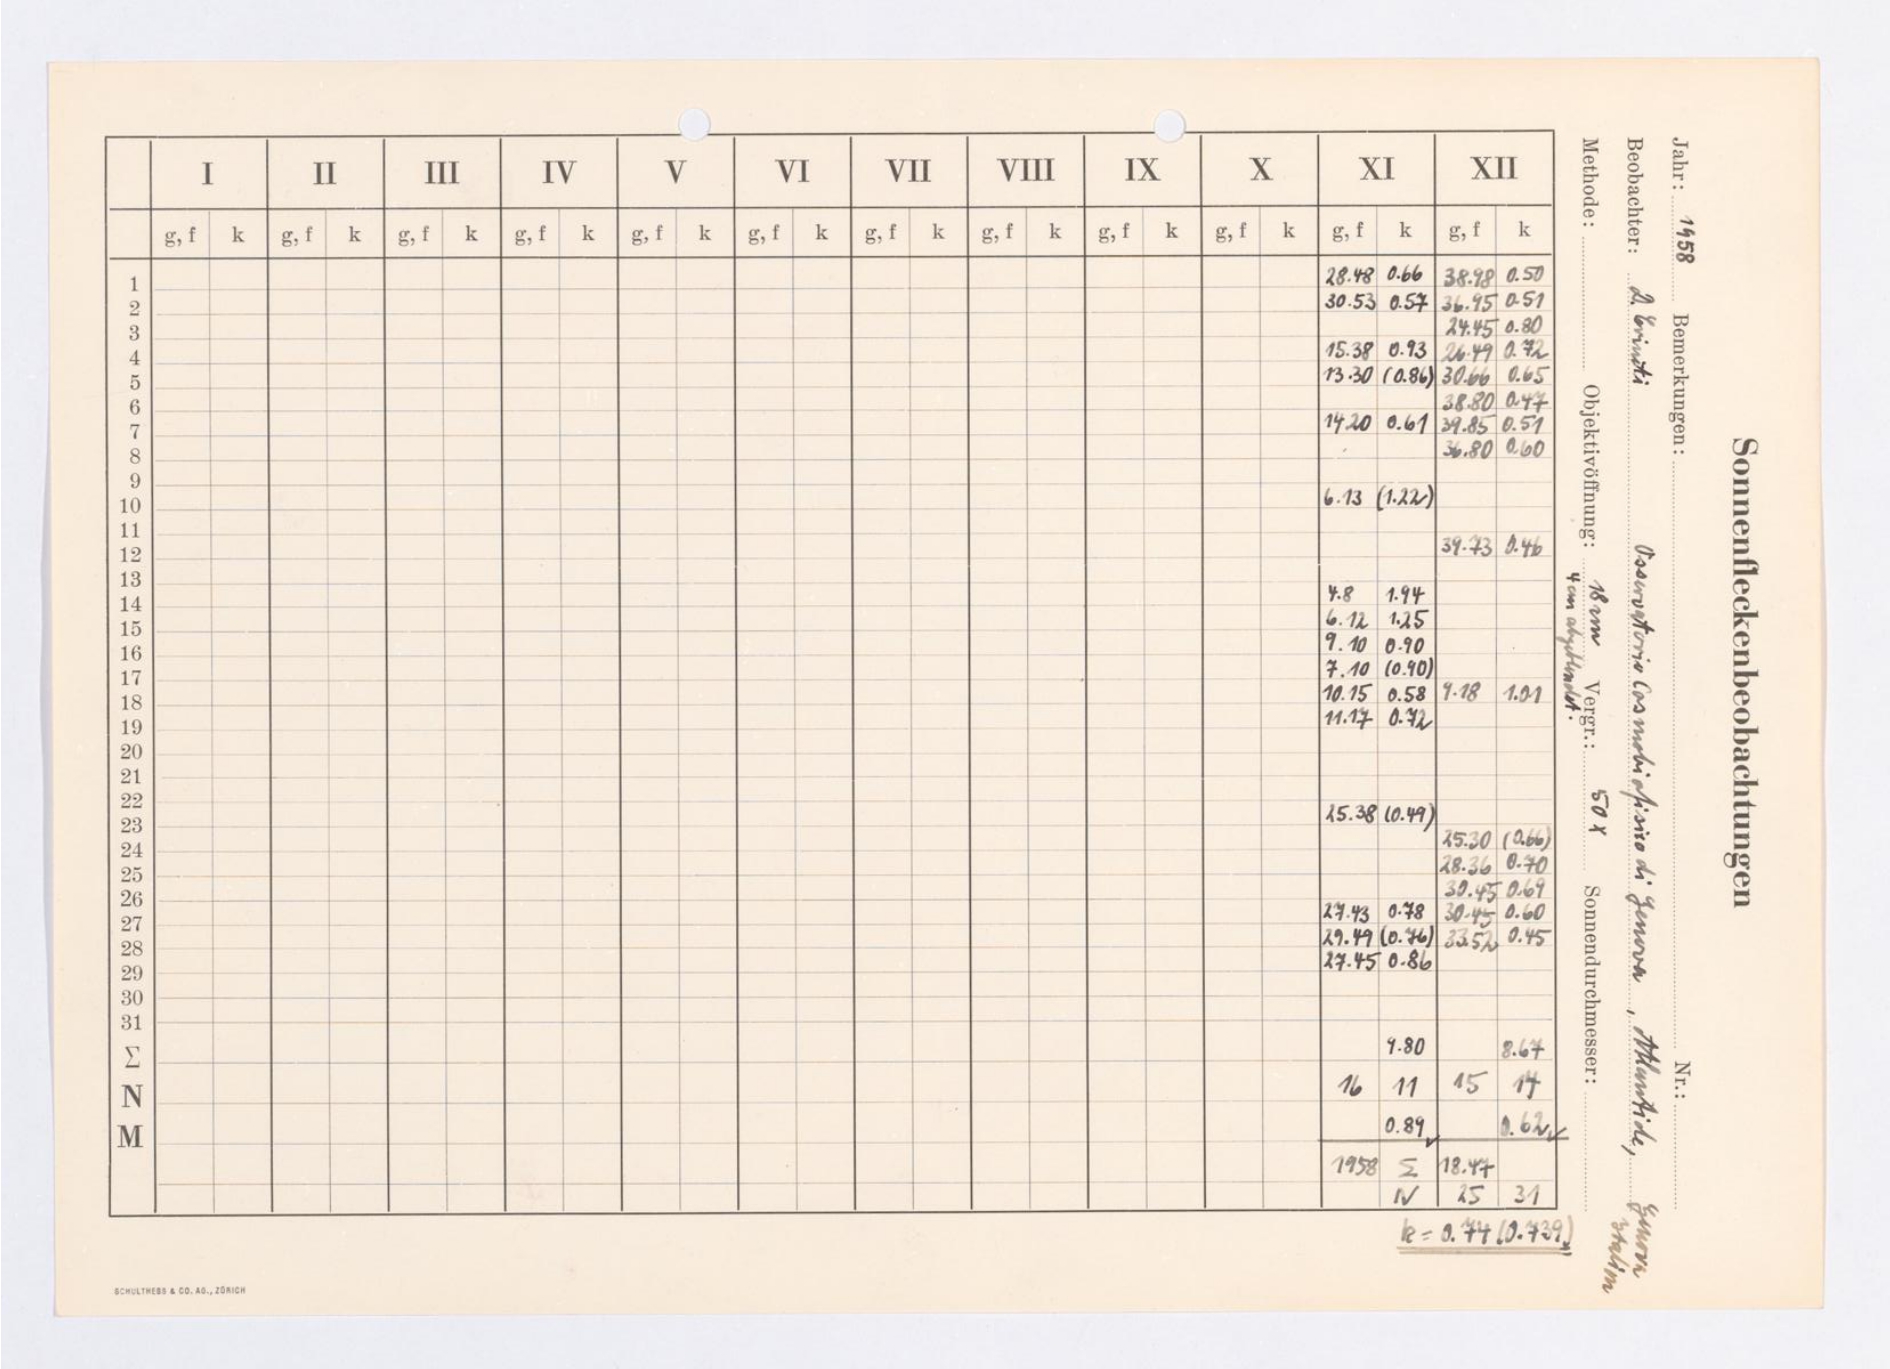 Sonnenfleckenbeobachtungen
Jahr: 1958 Bemerkungen: Nr.:
Beobachter: Osservatorio di Genova, Genova
Methode: Objektivöffnung: 18 cm Vergr.: 50 x Sonnendurchmesser:
4 cm
I II III IV V VI VII VIII IX X XI XII
g, f k g, f k g, f k g, f k g, f k g, f k g, f k g, f k g, f k g, f k g, f k g, f k
1 28.48 0.66 38.98 0.50
2 30.53 0.57 36.95 0.51
3 24.45 0.80
4 15.38 0.93 26.49 0.72
5 13.30 (0.86) 30.66 0.65
6 38.80 0.47
7 14.20 0.61 39.85 0.51
8 36.80 0.60
9
10 6.13 (1.22)
11
12 39.73 0.46
13
14 4.8 1.94
15 6.12 1.25
16 9.10 0.90
17 7.10 (0.90)
18 10.15 0.58 9.18 1.01
19 11.17 0.72
20
21
22
23 25.38 (0.49)
24 25.30 (0.66)
25 28.36 0.70
26 30.45 0.69
27 27.43 0.78 30.45 0.60
28 29.49 (0.76) 33.52 0.45
29 27.45 0.86
30
31
Σ 9.80 8.67
N 16 11 15 14
M 0.89 0.62
1958 Σ 18.47
N 25 31
k = 0.74 (0.739)
SCHULTHESS & CO. AG., ZÜRICH